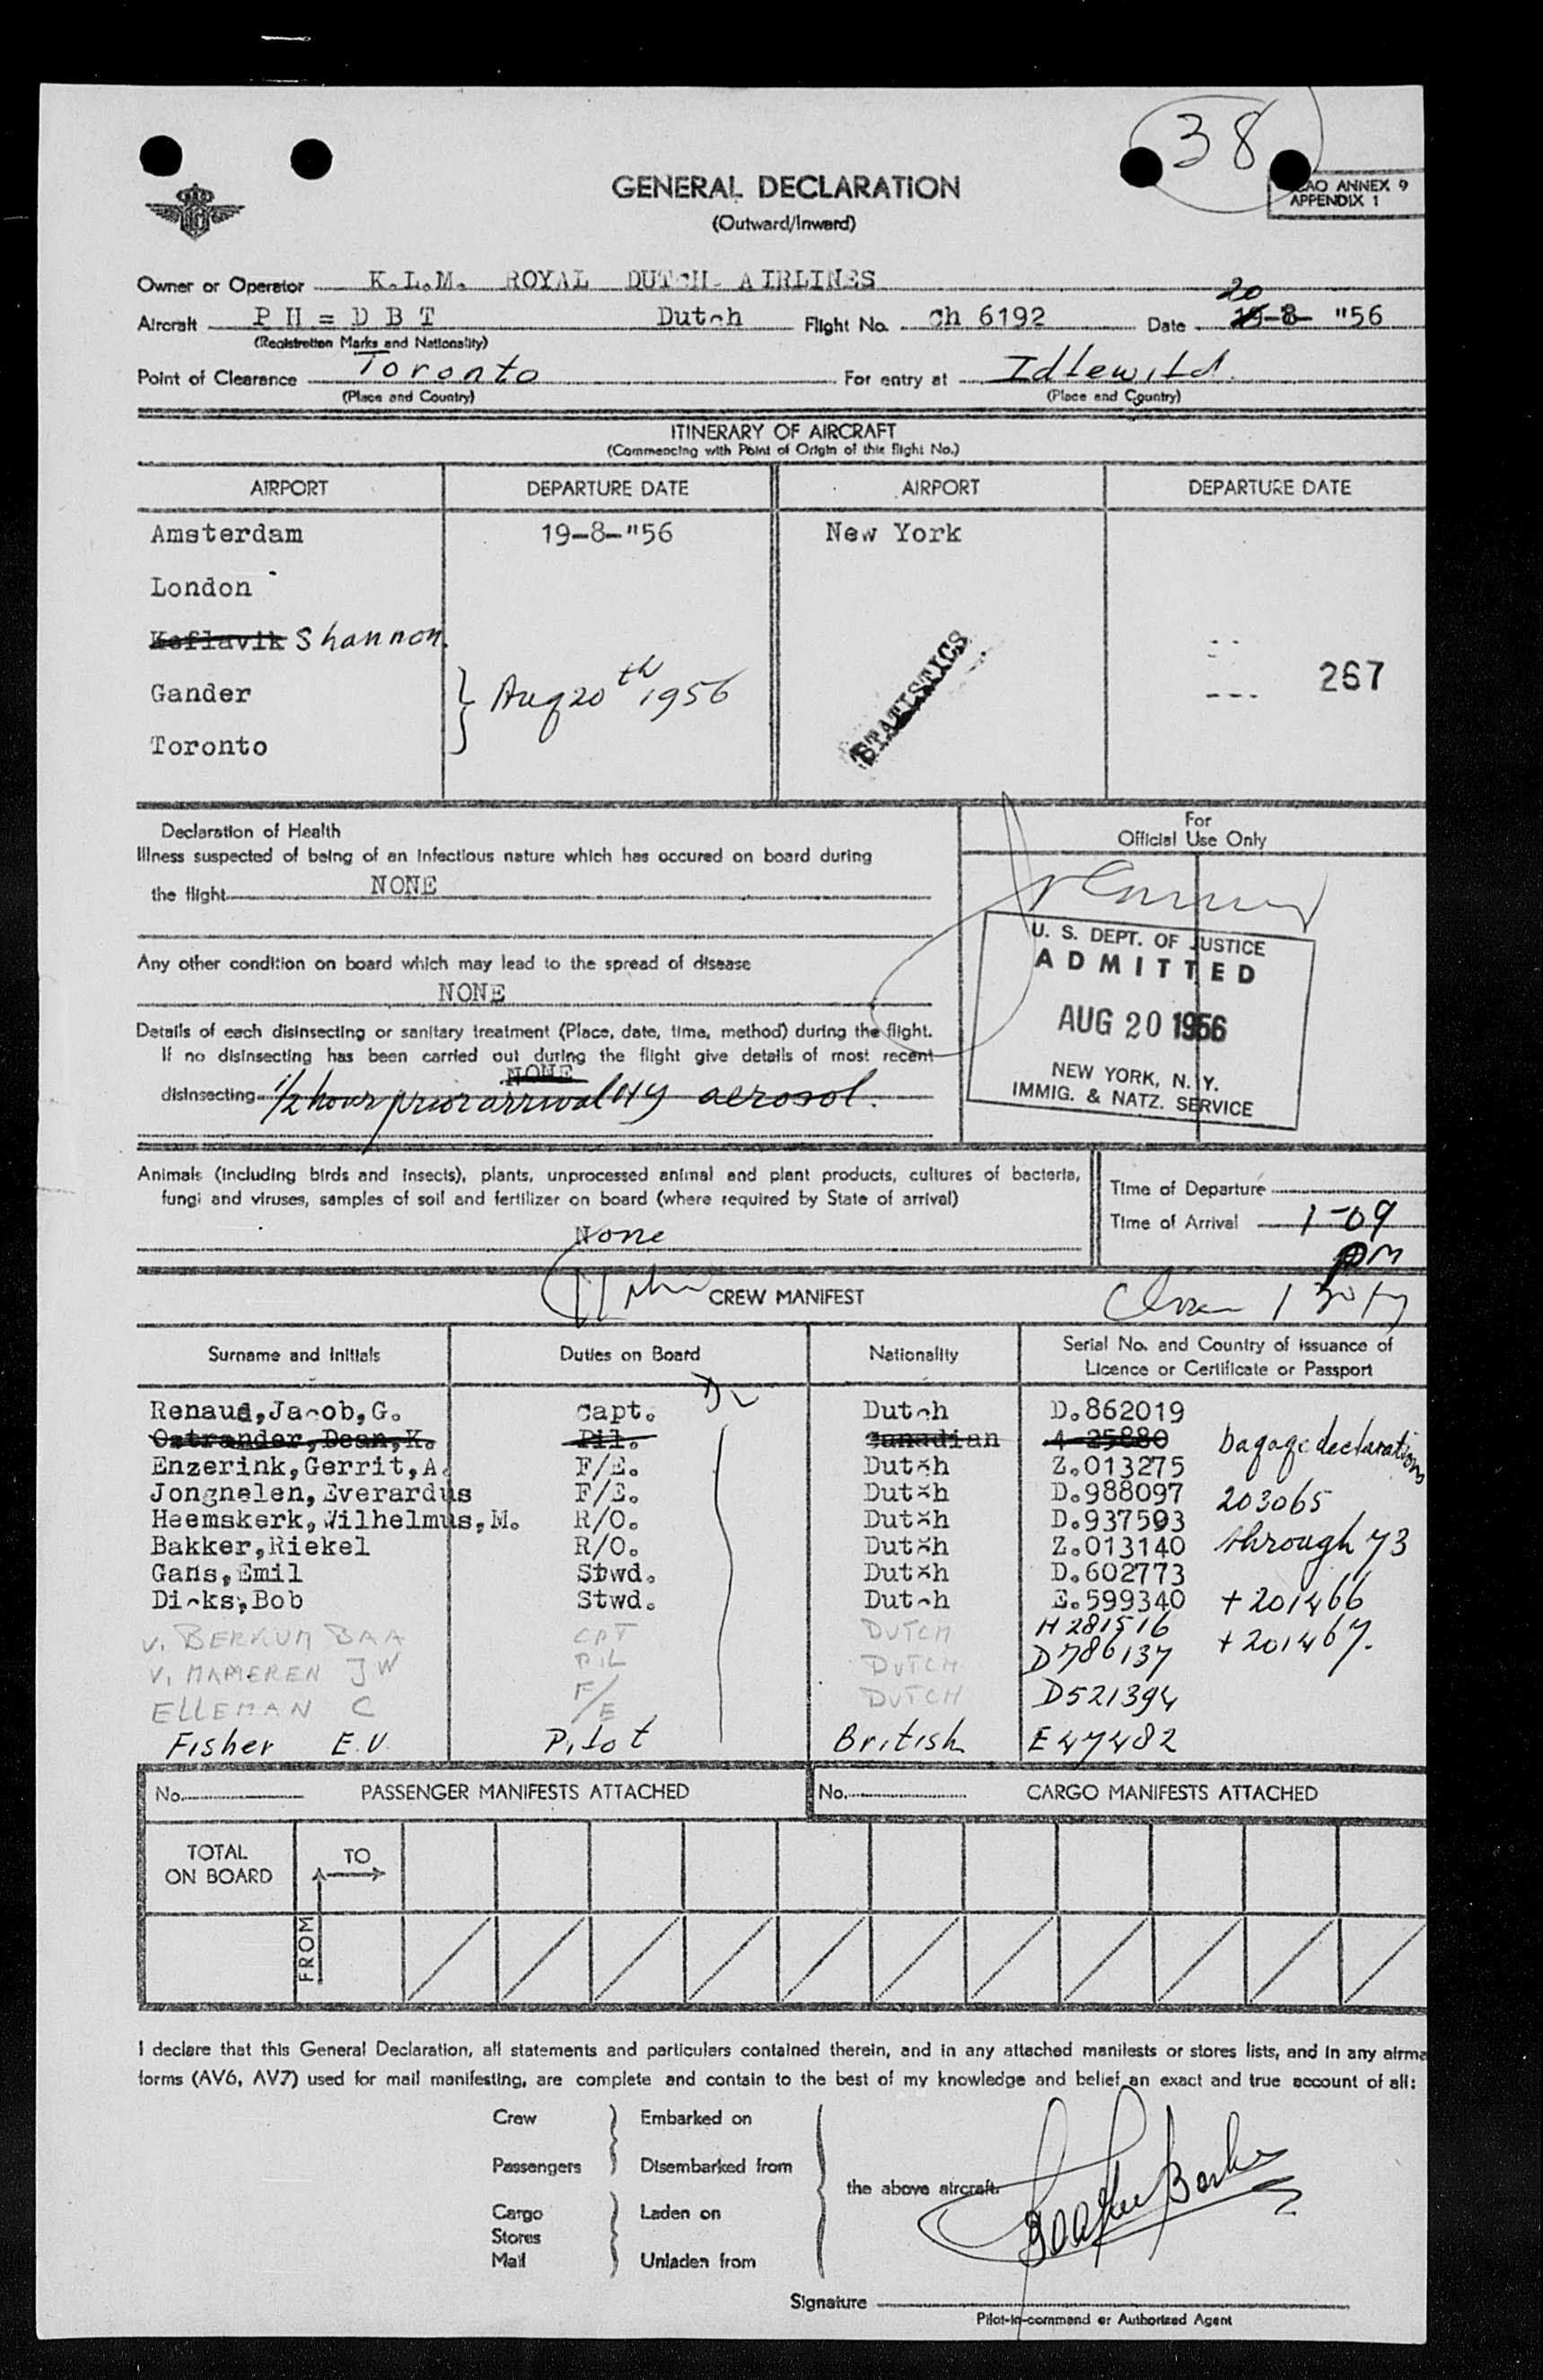 38
GENERAL DECLARATION
(Outward/Inward)
ICAO ANNEX 9
APPENDIX 1
Owner or Operator K.L.M. ROYAL DUTCH AIRLINES
Aircraft PH = DBT Dutch Flight No. Ch 6192 Date 20 19-8-"56
(Registration Marks and Nationality)
Point of Clearance Toronto For entry at Idlewild.
(Place and Country) (Place and Country)
ITINERARY OF AIRCRAFT
(Commencing with Point of Origin of this flight No.)
AIRPORT DEPARTURE DATE AIRPORT DEPARTURE DATE
Amsterdam 19-8-"56 New York
London
Keflavik Shannon.
Gander } Aug 20th 1956 267
STATISTICS
Toronto
Declaration of Health
Illness suspected of being of an infectious nature which has occured on board during
the flight NONE
Any other condition on board which may lead to the spread of disease
NONE
Details of each disinsecting or sanitary treatment (Place, date, time, method) during the flight.
If no disinsecting has been carried out during the flight give details of most recent
NONE
disinsecting 1/2 hour prior arrival NY aerosol.
For
Official Use Only
U. S. DEPT. OF JUSTICE
ADMITTED
AUG 20 1956
NEW YORK, N. Y.
IMMIG. & NATZ. SERVICE
Animals (including birds and insects), plants, unprocessed animal and plant products, cultures of bacteria,
fungi and viruses, samples of soil and fertilizer on board (where required by State of arrival)
None
Time of Departure
Time of Arrival 1-09
PM
CREW MANIFEST
Surname and Initials Duties on Board Nationality Serial No. and Country of issuance of
Licence or Certificate or Passport
Renaud,Jacob,G. Capt. Dutch D.862019
Ostrander,Dean,K. Pil. Canadian 4-25880 bagage declarations
Enzerink,Gerrit,A. F/E. Dutch Z.013275
Jongnelen,Everardus F/E. Dutch D.988097 203065
Heemskerk,Wilhelmus,M. R/O. Dutch D.937593
Bakker,Riekel R/O. Dutch Z.013140 through 73
Gans,Emil Stwd. Dutch D.602773
Dicks,Bob Stwd. Dutch E.599340 + 201466
v. BERKUM BAA CPT DUTCH H 281516
+ 201467.
v. MAMEREN JW PIL DUTCH D786137
ELLEMAN C F/E DUTCH D521394
Fisher E.V. Pilot British E47482
No. PASSENGER MANIFESTS ATTACHED No. CARGO MANIFESTS ATTACHED
TOTAL
ON BOARD
TO
FROM
I declare that this General Declaration, all statements and particulars contained therein, and in any attached manifests or stores lists, and in any airma
forms (AV6, AV7) used for mail manifesting, are complete and contain to the best of my knowledge and belief an exact and true account of all:
Crew Embarked on
Passengers Disembarked from
the above aircraft.
Cargo Laden on
Stores
Mail Unladen from
Signature
Pilot-in-command or Authorized Agent